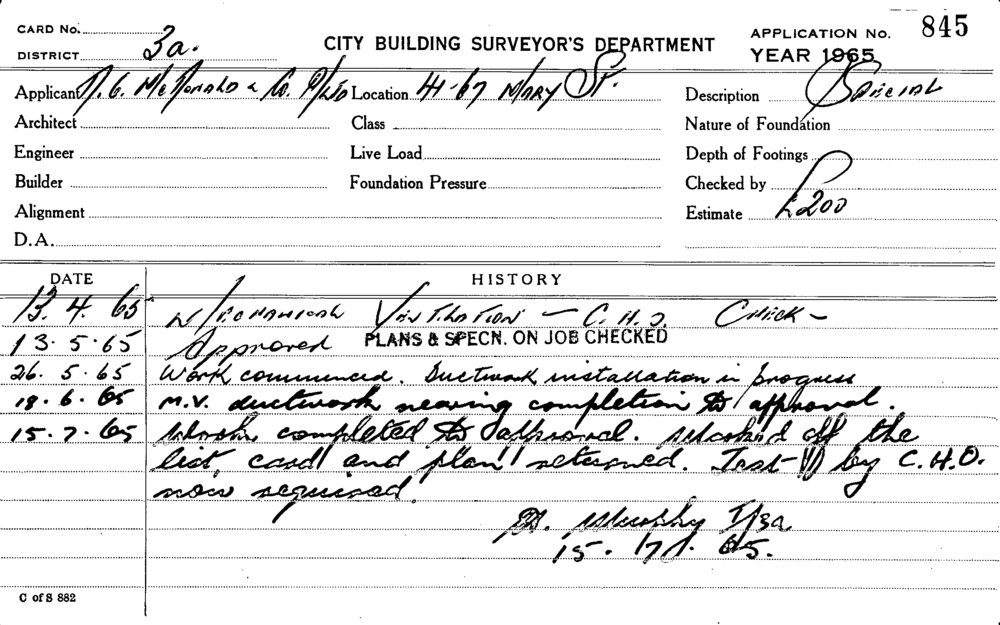 CARD No.
DISTRICT 3a.
CITY BUILDING SURVEYOR'S DEPARTMENT
APPLICATION No. 845
YEAR 1965
Applicant N. G. McDonald & Co. P/Ltd Location 41-67 Mary St. Description Special
Architect Class Nature of Foundation
Engineer Live Load Depth of Footings
Builder Foundation Pressure Checked by
Alignment Estimate £200
D.A.
DATE HISTORY
13. 4. 65 Mechanical Ventilation - C.H.O. Check -
13. 5. 65 Approved PLANS & SPECN. ON JOB CHECKED
26. 5. 65 Work commenced. Ductwork installation in progress
18. 6. 65 M.V. ductwork nearing completion to approval.
15. 7. 65 Work completed to approval. Marked off the
list, card and plan returned. Test by C.H.O.
now required.
Murphy I/3a
15. 7. 65.
C of S 882